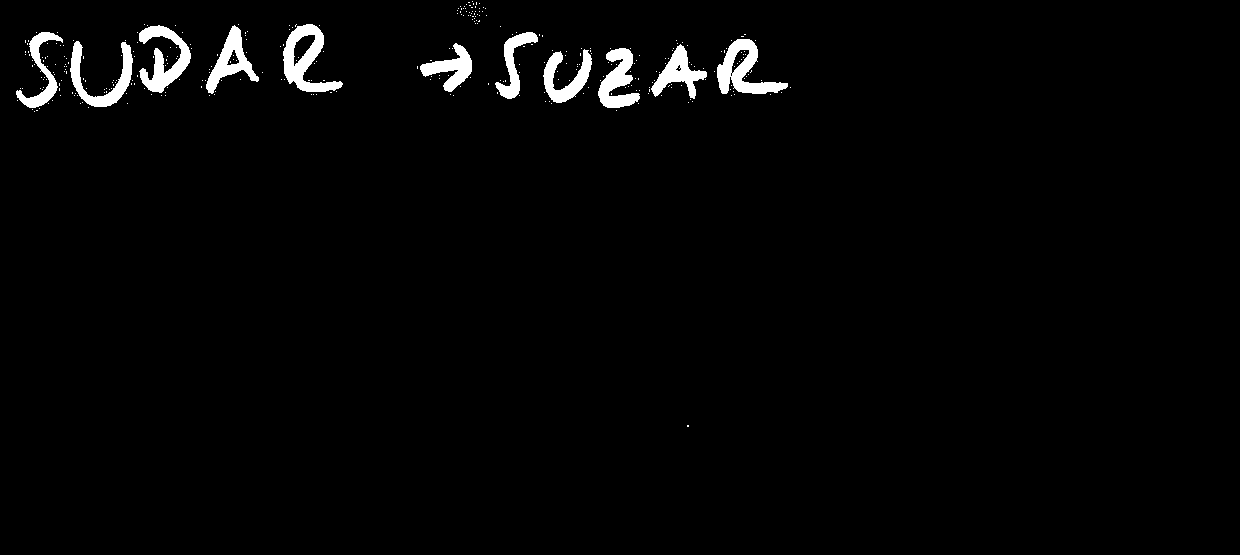 SUDAR → SUZAR